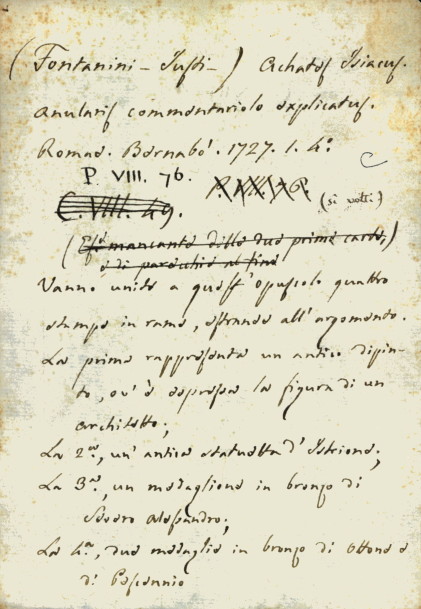 (Fontanini - Justi - ) Achates Isiacus.
Anularis commentariolo explicatus.
Romae. Bernabò. 1727. 1. 4.°
P. VIII. 76.
(si volti)
C. VIII. 49.
(Es. mancante delle due prime carte,)
e di parecchie al fine
Vanno unite a quest'opuscolo quattro
stampe in rame, estranee all'argomento.
La prima rappresenta un antico dipin-
to, ov'è espressa la figura di un
architetto;
La 2.ª, un'antica statuetta d'Istrione;
La 3.ª, un medaglione in bronzo di
Severo Alessandro;
La 4.ª, due medaglie in bronzo di Ottone e
di Pescennio